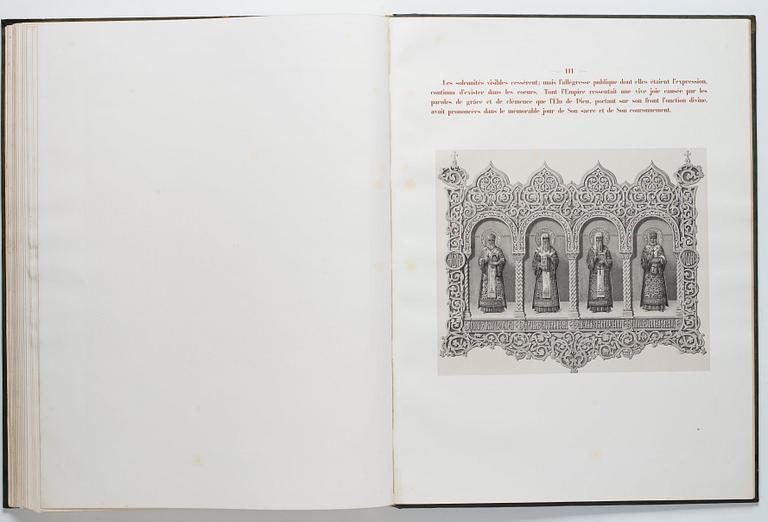 — 111 —
Les solennités visibles cessèrent; mais l'allégresse publique dont elles étaient l'expression,
continua d'exister dans les coeurs. Tout l'Empire ressentait une vive joie causée par les
paroles de grâce et de clémence que l'Elu de Dieu, portant sur son front l'onction divine,
avait prononcées dans le mémorable jour de Son sacre et de Son couronnement.